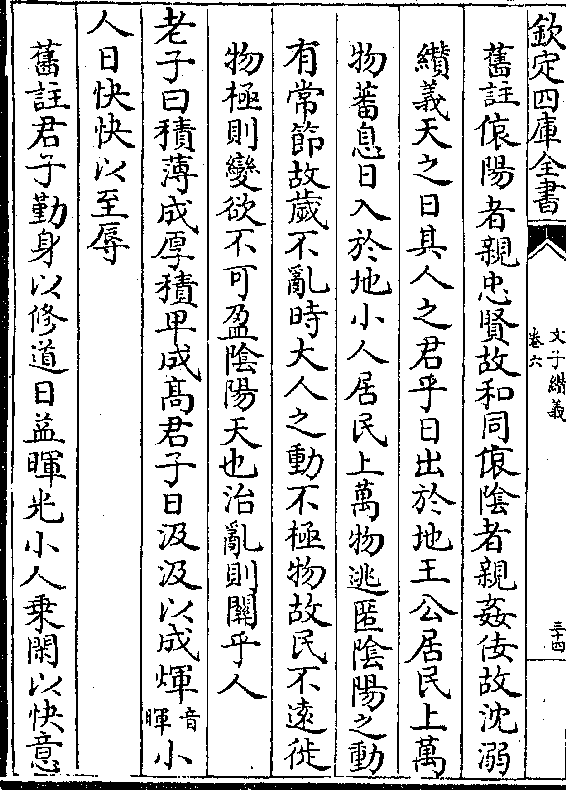 欽定四庫全書
文子纘義
卷六
三十四
舊註偯陽者親忠賢故和同偯陰者親姦佞故沈溺
纘義天之日其人之君乎日出於地王公居民上萬
物蕃息日入於地小人居民上萬物逃匿陰陽之動
有常節故歲不亂時大人之動不極物故民不遠徙
物極則變欲不可盈陰陽天也治亂則關乎人
老子曰積薄成厚積甲成高君子日汲汲以成煇音暉小
人日快快以至辱
舊註君子勤身以修道日益暉光小人乗閑以快意